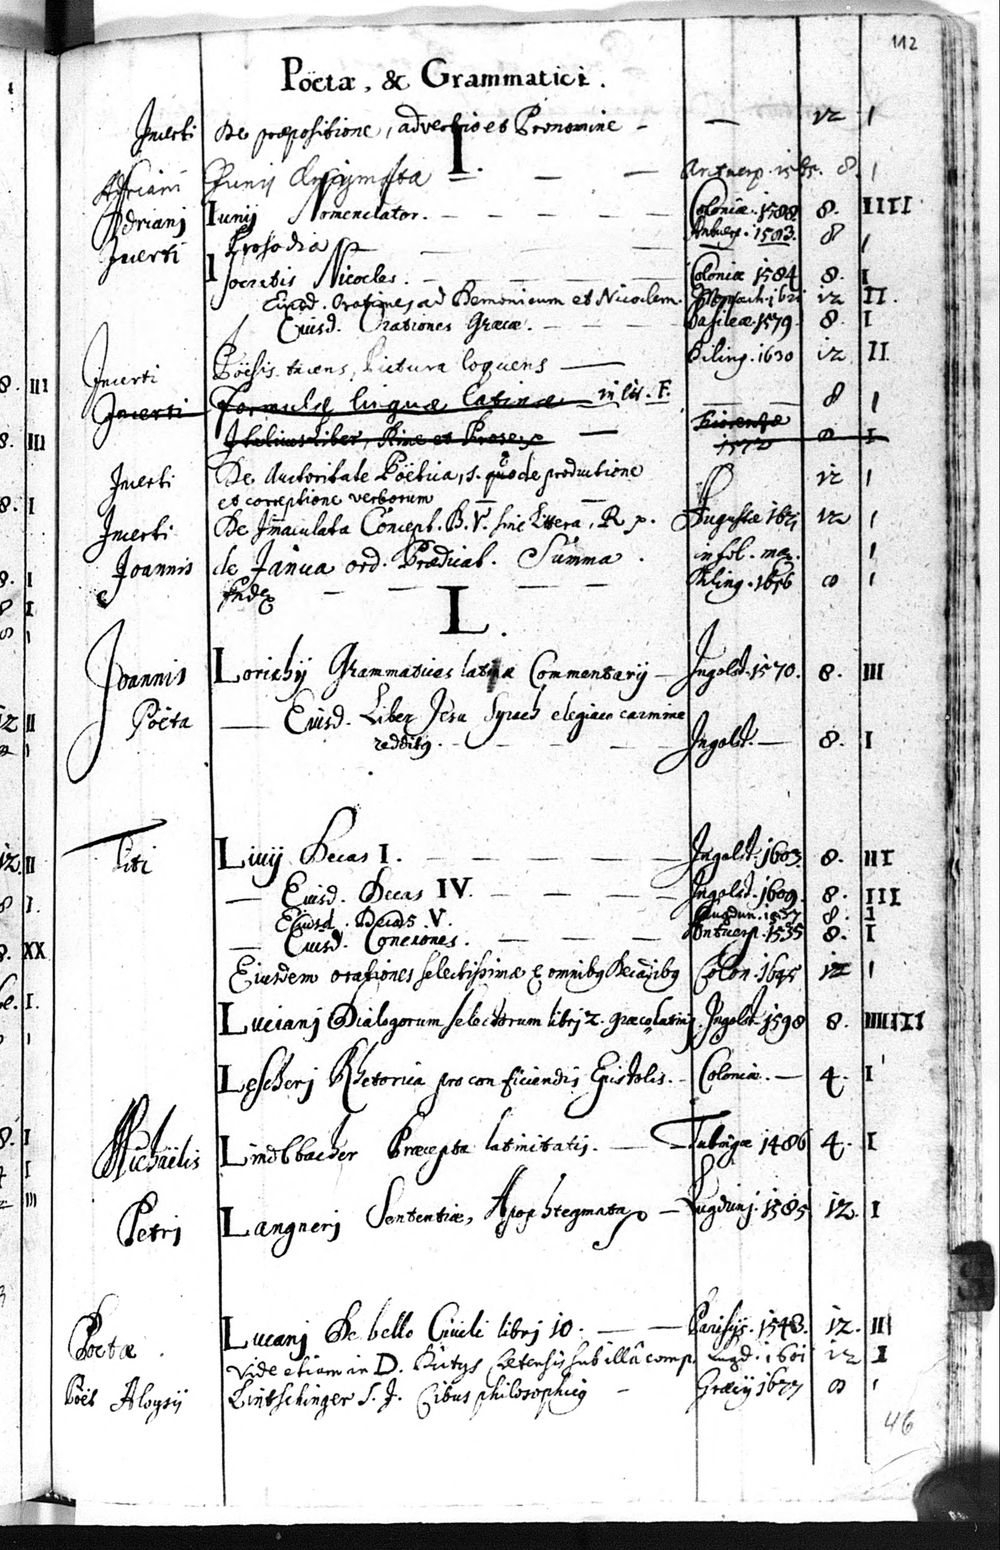 112
Poëtæ, & Grammatici.
Incerti De præpositione, adverbio et Pronomine - — 12 I
I.
Adriani Junij Antwerp. 8. I
Adriani Iunij Nomenclator. Coloniæ. 1588. 8. IIII
Antverp. 1583. 8 I
Incerti Prosodia
Isocratis Nicocles. Coloniæ 1584 8. I
Eiusd. Orationes ad Demonicum et Nicoclem. 12 II.
Eiusd. Orationes Græcæ. Basileæ. 1579. 8. I
Incerti Poësis tacens, Pictura loquens — Diling. 1630 12 II
Incerti formulæ linguæ latinæ in lit. F. 8 I
Italicus liber, Rime et Prose Fiorenza 1572 8 I
Incerti De Autoritate Poëtica, s. de productione 12 I
et correptione verborum
Incerti De Immaculata Concept. B. V. sine littera, R p. Augustæ 12 I
Joannis de Janua ord. Prædicat. Summa. in fol. I
Index Diling. 1656 8 I
L.
Joannis Lorichij Grammaticas latinæ Commentarij — Ingolst. 1570. 8. III
Poëta — Eiusd. Liber Jesu Syrach elegiaco carmine
redditg. Ingolst. — 8. I
Titi Livij Decas I. Ingolst. 1603. 8. III
— Eiusd. Decas IV. Ingolst. 1609. 8. III
Eiusd. Decas V. Lugdun. 1537 8. I
— Eiusd. Conciones. Antverp. 1535 8. I
Eiusdem orationes selectissimæ ex omnibg Decadibg Colon. 1645 12 I
Lucianj Dialogorum selectorum librj 2. græcolatinj. Ingolst. 1598 8.
Lescherj Rhetorica pro conficiendis Epistolis. - Coloniæ. — 4. I
Michaëlis Lindlbacher Præcepta latinitatis. — Tubingæ 1486 4. I
Petrj Langnerj Sententiæ, Apophtegmata — Lugdunj. 1585 12. I
Poëtæ. Lucanj De bello Civili librj 10. — Parisijs. 1543. 12. III
Vide etiam in D. sub illâ comp. Lugd. 12 I
Poët Aloysij Lintschinger S. J. Cibus philosophicg - Græcij 1677 8 I
46